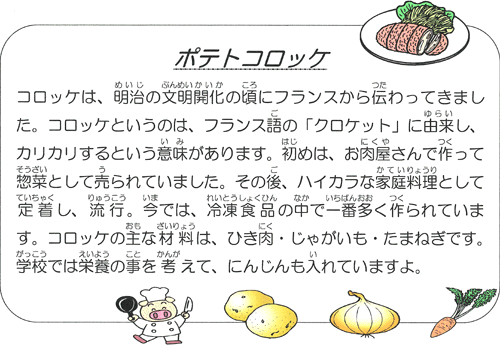 ポテトコロッケ
コロッケは、明治の文明開化の頃にフランスから伝わってきまし
た。コロッケというのは、フランス語の「クロケット」に由来し、
カリカリするという意味があります。初めは、お肉屋さんで作って
惣菜として売られていました。その後、ハイカラな家庭料理として
定着し、流行。今では、冷凍食品の中で一番多く作られていま
す。コロッケの主な材料は、ひき肉・じゃがいも・たまねぎです。
学校では栄養の事を考えて、にんじんも入れていますよ。